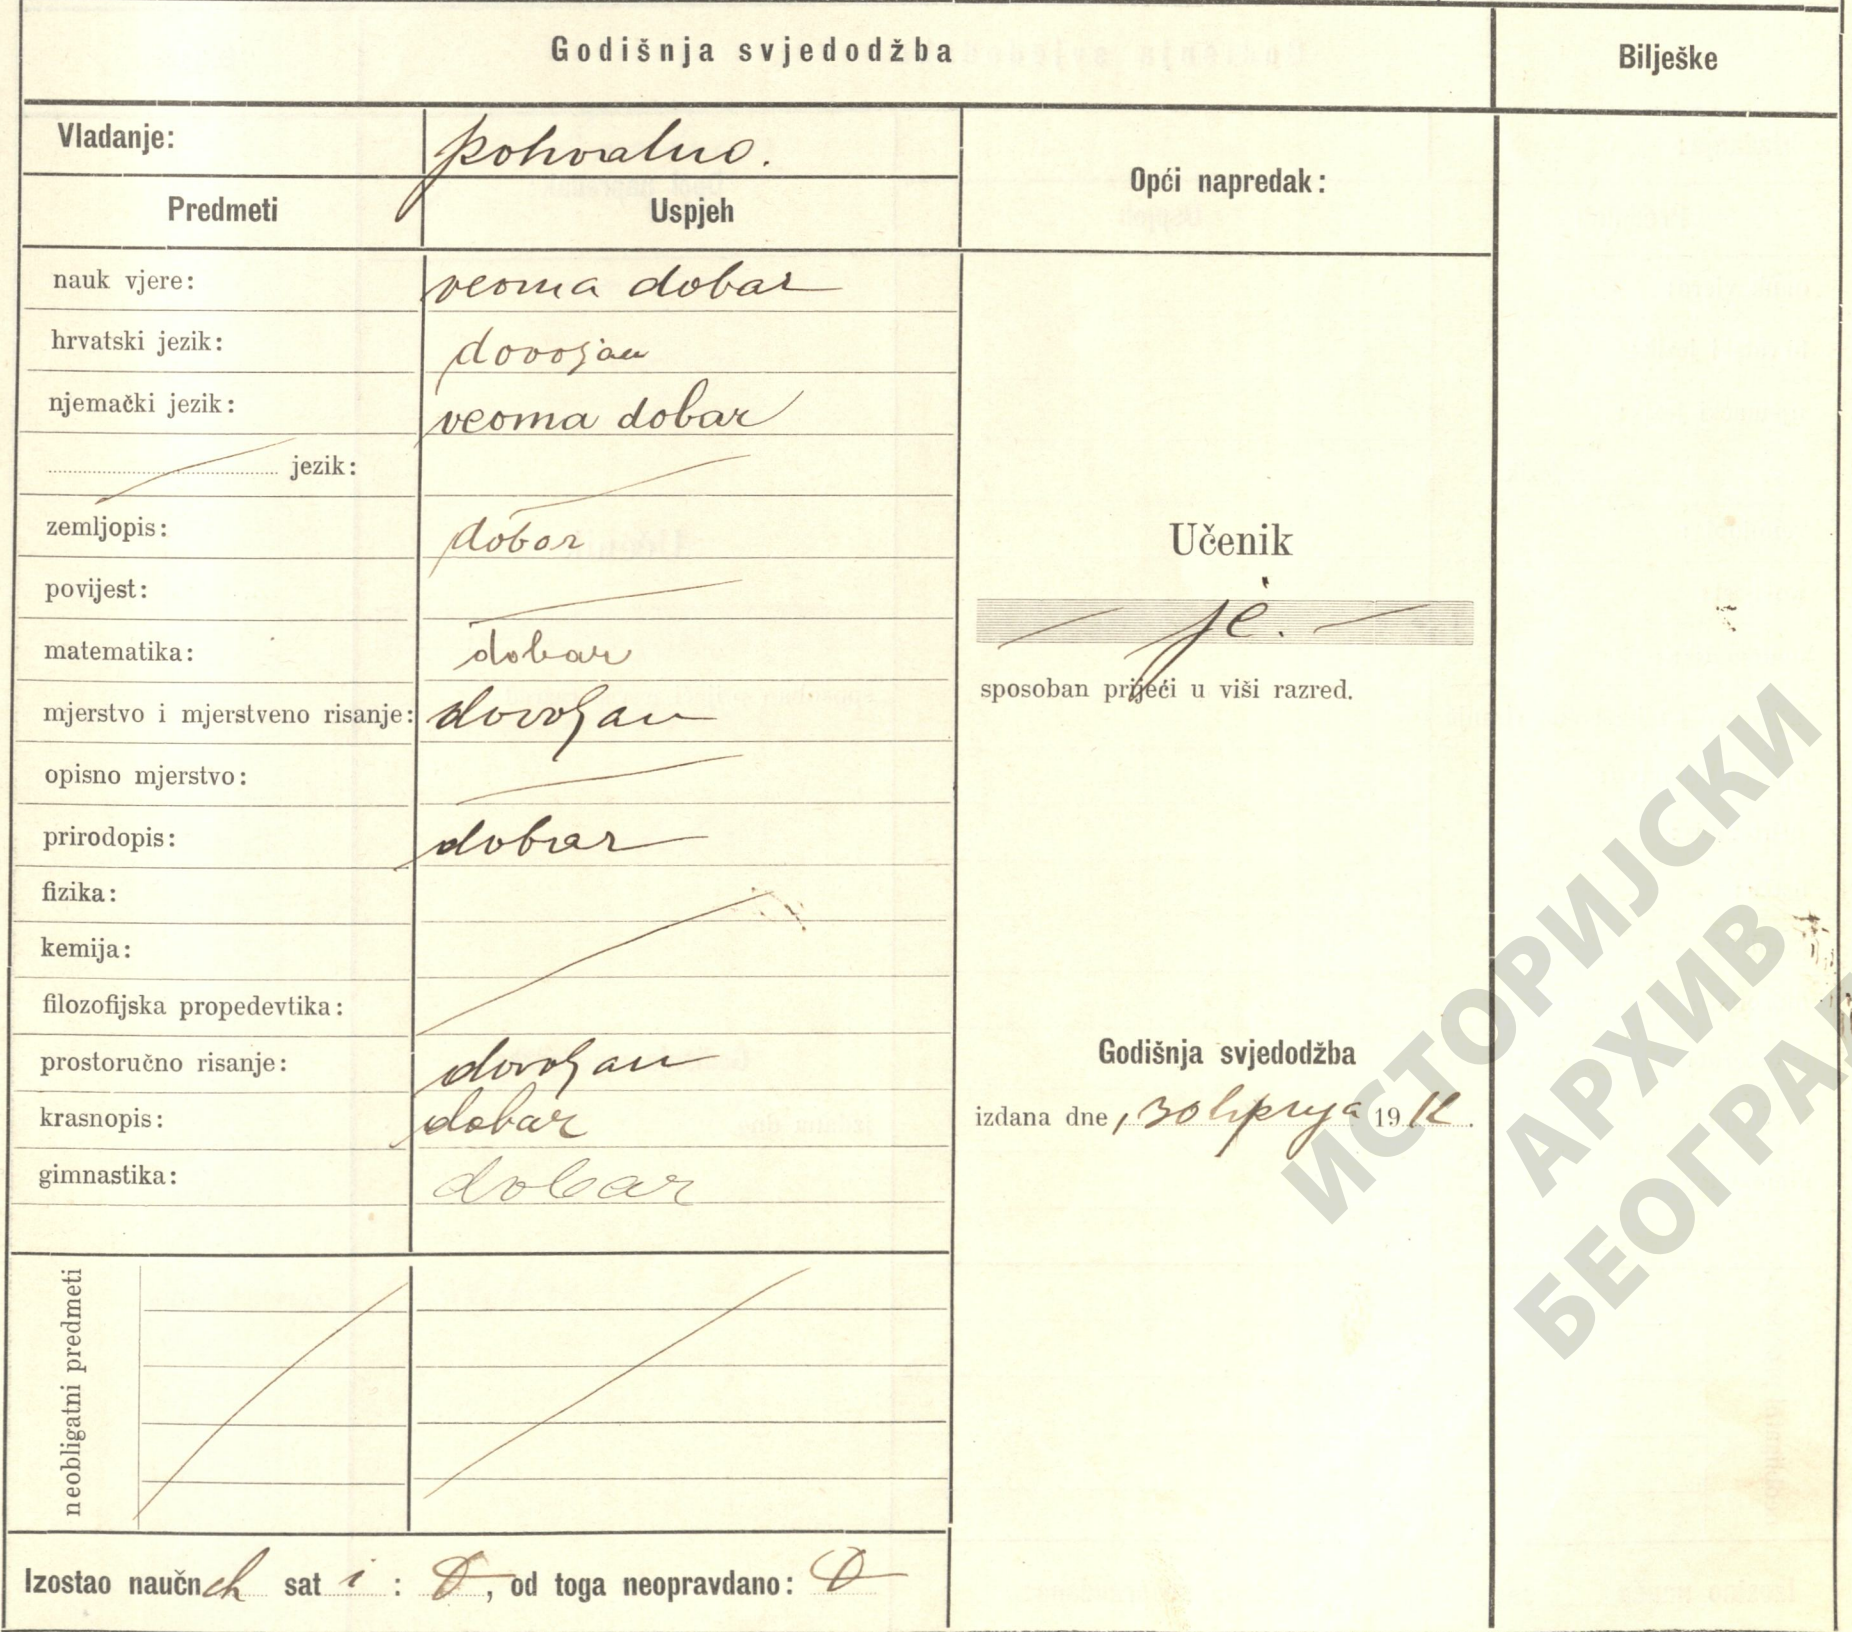 Godišnja svjedodžba
Bilješke
Vladanje: pohvalno.
Opći napredak:
Predmeti Uspjeh
nauk vjere: veoma dobar
hrvatski jezik: dovoljan
njemački jezik: veoma dobar
jezik:
zemljopis: dobar
povijest:
matematika: dobar
mjerstvo i mjerstveno risanje: dovoljan
opisno mjerstvo:
prirodopis: dobar
fizika:
kemija:
filozofijska propedevtika:
prostoručno risanje: dovoljan
krasnopis: dobar
gimnastika: dobar
neobligatni predmeti
Izostao naučnih sati : 0, od toga neopravdano: 0
Učenik
je.
sposoban prijeći u viši razred.
Godišnja svjedodžba
izdana dne, 30 lipnja 1912.
ИСТОРИЈСКИ
АРХИВ
БЕОГРАД